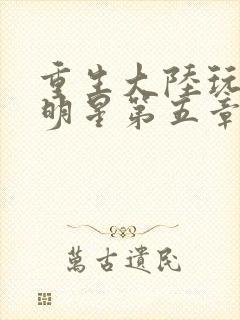 重生大陸玩
明星第五章
萬古遺民